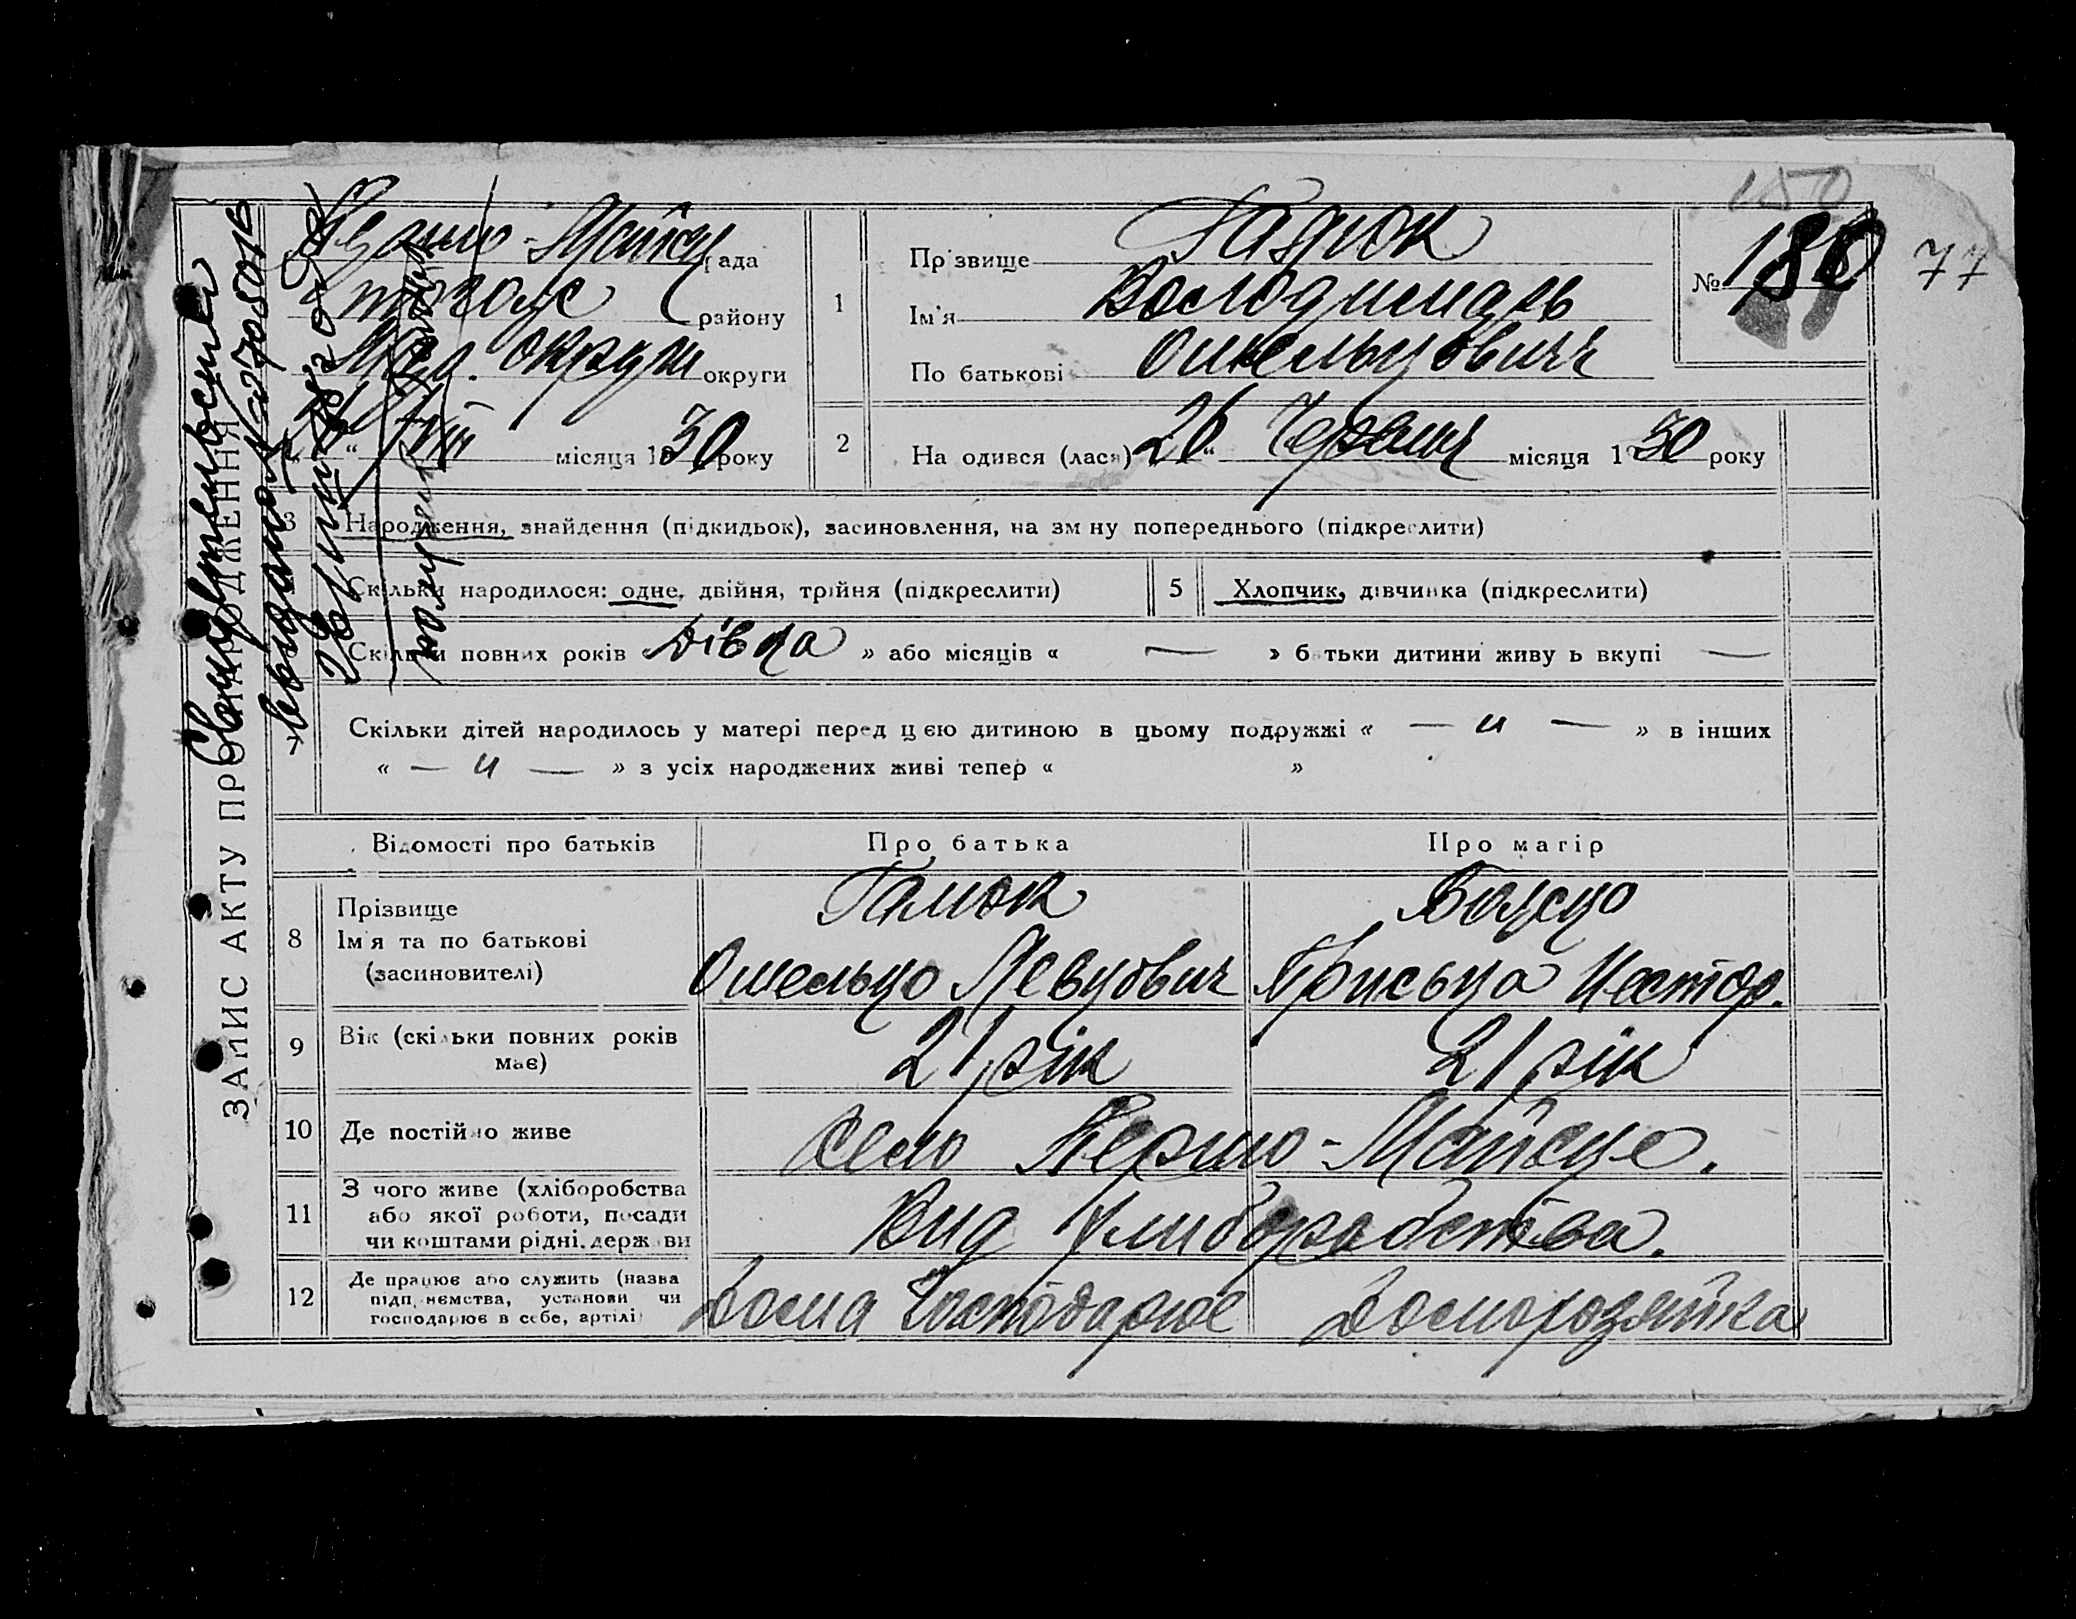 150
№ 180 77
ЗАПИС АКТУ ПРО НАРОДЖЕННЯ
Свидетельство
выдано № 270501
Першо-Майськ рада
району
Мел. округи округи
VIII місяця 1930 року
1
Прізвище
Ім'я Володимирь
По батькові Омельковичь
2 На одився (лася) 26 “ Червня місяця 1930 року
3 Народження, знайдення (підкидьок), засиновлення, на зміну попереднього (підкреслити)
Скільки народилося: одне, двійня, трійня (підкреслити)
5 Хлопчик, дівчинка (підкреслити)
Скільки повних років « Дівка » або місяців « — » батьки дитини живуть вкупі —
7 Скільки дітей народилось у матері перед цією дитиною в цьому подружжі « — и — » в інших
« — и — » з усіх народжених живі тепер « »
Відомості про батьків Про батька Про матір
8 Прізвище
Ім'я та по батькові
(засиновителі)
Омелько Левкович
Приська Нестор.
9 Вік (скільки повних років має) 21 рік 21 рік
10 Де постійно живе село Першо-Майське.
11 З чого живе (хліборобства
або якої роботи, посади
чи коштами рідні, держави
Вид хлиборобства.
12 Де працює або служить (назва
підприємства, установи чи
господарює в себе, артілі)
Дома господарює Домохозяйка